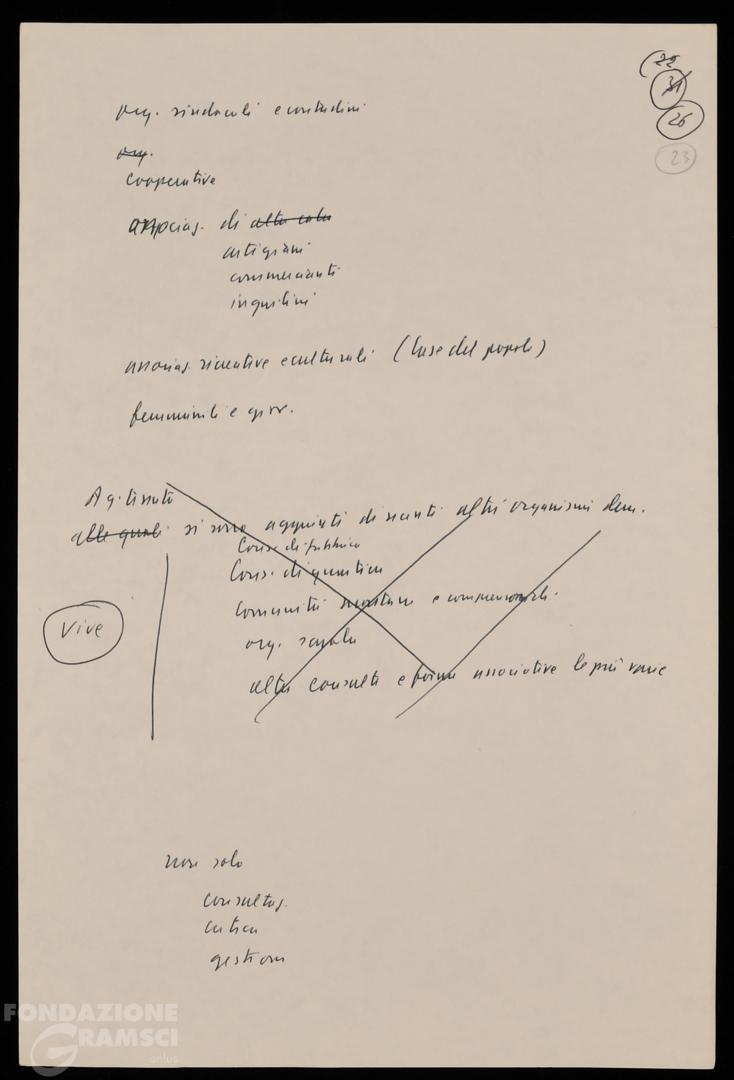 22
31
26
23
org. sindacali e contadini
org.
cooperative
associaz. di altre cate
artigiani
commercianti
inquilini
associaz. ricreative e culturali (Case del popolo)
femminili e giov.
A q. tessuto
alle quali si sono aggiunti di recenti altri organismi dem.
Cons. di fabbrica
Cons. di quartiere
comunità montane e comprensoriali.
org. scuola
altre consulte e forme associative le più varie
Vive
non solo
consultaz.
critica
gestione
FONDAZIONE
GRAMSCI
onlus